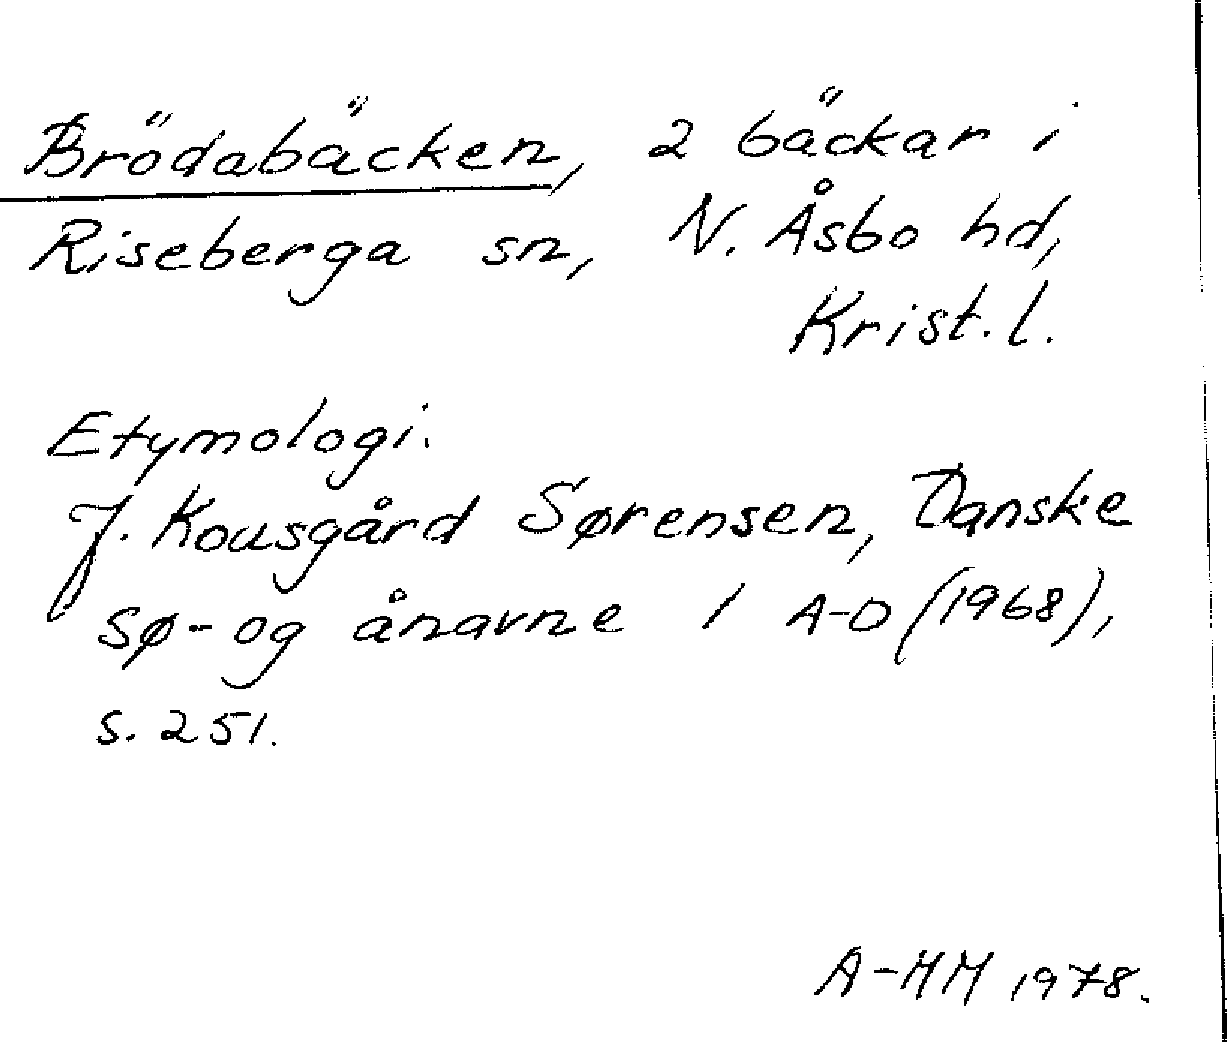 Brödabäcken, 2 bäckar i
Riseberga sn, N. Åsbo hd,
Krist. l.
Etymologi.
J. Kousgård Sørensen, Danske
sø- og ånavne 1 A-D (1968),
s. 251.
A-HM 1978.